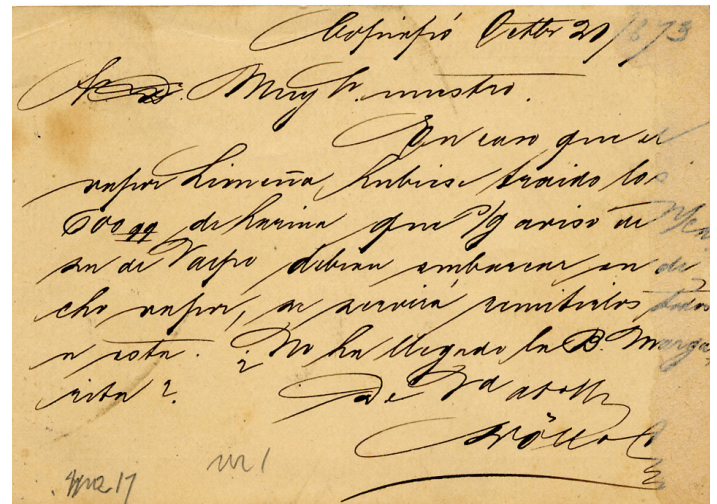 Copiapó Octbr 20/1873
Muy Sr. nuestro.
En caso que el
vapor Limeña, hubiese traido los
600 qq de harina que s/g aviso de
sa de Valpo debian embarcar en di
cho vapor, se servirá remitirlos todos
a esta. ¿No ha llegado la B. Marga
rita?
De Vd
No 1